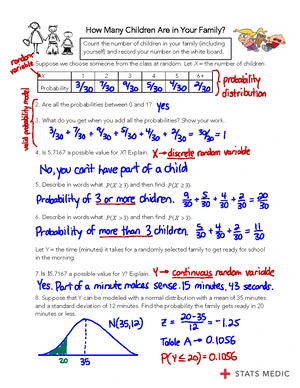 How Many Children Are in Your Family?
Count the number of children in your family (including
yourself) and record your number on the white board.
random
variable
Suppose we choose someone from the class at random. Let X = the number of children.
X 1 2 3 4 5 6+
Probability 3/30 7/30 9/30 5/30 4/30 2/30
probability
distribution
valid probability model
2. Are all the probabilities between 0 and 1? yes
3. What do you get when you add all the probabilities? Show your work.
3/30 + 7/30 + 9/30 + 5/30 + 4/30 + 2/30 = 30/30 = 1
4. Is 5.7167 a possible value for X? Explain. X → discrete random variable
No, you can't have part of a child
5. Describe in words what P(X ≥ 3) and then find P(X ≥ 3).
Probability of 3 or more children. 9/30 + 5/30 + 4/30 + 2/30 = 20/30
6. Describe in words what P(X > 3) and then find P(X > 3).
Probability of more than 3 children. 5/30 + 4/30 + 2/30 = 11/30
Let Y = the time (minutes) it takes for a randomly selected family to get ready for school
in the morning.
7. Is 15.7167 a possible value for Y? Explain. Y → continuous random variable
Yes. Part of a minute makes sense. 15 minutes, 43 seconds.
8. Suppose that Y can be modeled with a normal distribution with a mean of 35 minutes
and a standard deviation of 12 minutes. Find the probability the family gets ready in 20
minutes or less.
N(35,12)
Z = 20-35/12 = -1.25
Table A → 0.1056
P(Y ≤ 20) = 0.1056
20 35
STATS MEDIC